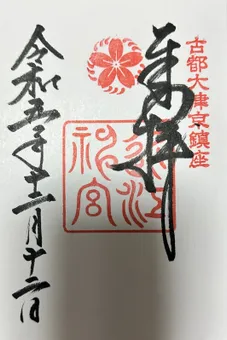 古都大津京鎮座
奉拝
近江神宮
令和五年十二月十二日